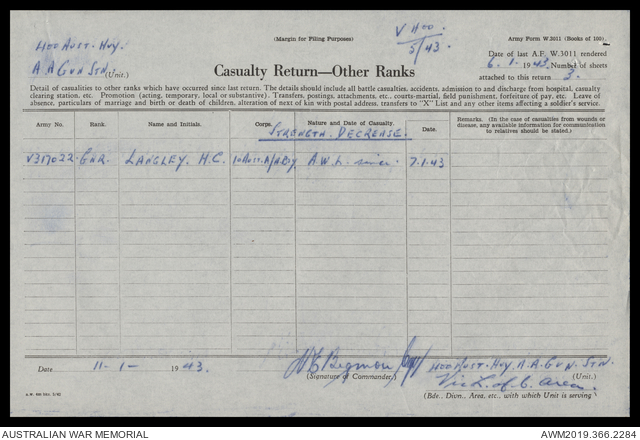 400 Aust. Hvy.
A A Gun Stn. (Unit.)
(Margin for Filing Purposes)
V H00.
5/43.
Army Form W.3011 (Books of 100).
Date of last A.F. W.3011 rendered
6. 1. 1943. Number of sheets
attached to this return 3.
Casualty Return—Other Ranks
Detail of casualties to other ranks which have occurred since last return. The details should include all battle casualties, accidents, admission to and discharge from hospital, casualty
clearing station, etc. Promotion (acting, temporary, local or substantive). Transfers, postings, attachments, etc., courts-martial, field punishment, forfeiture of pay, etc. Leave of
absence, particulars of marriage and birth or death of children, alteration of next of kin with postal address, transfers to "X" List and any other items affecting a soldier's service.
Army No. Rank. Name and Initials. Corps. Nature and Date of Casualty. Date. Remarks. (In the case of casualties from wounds or disease, any available information for communication to relatives should be stated.)
Strength Decrease.
V317022 Gnr. Langley. H.C. A.W.L. since. 7.1.43
Date 11-1- 1943.
(Signature of Commander)
400 Aust. Hvy. A.A. Gun. Stn.
(Unit.)
Vic L. of C. Area.
(Bde., Divn., Area, etc., with which Unit is serving)
AUSTRALIAN WAR MEMORIAL
AWM2019.366.2284